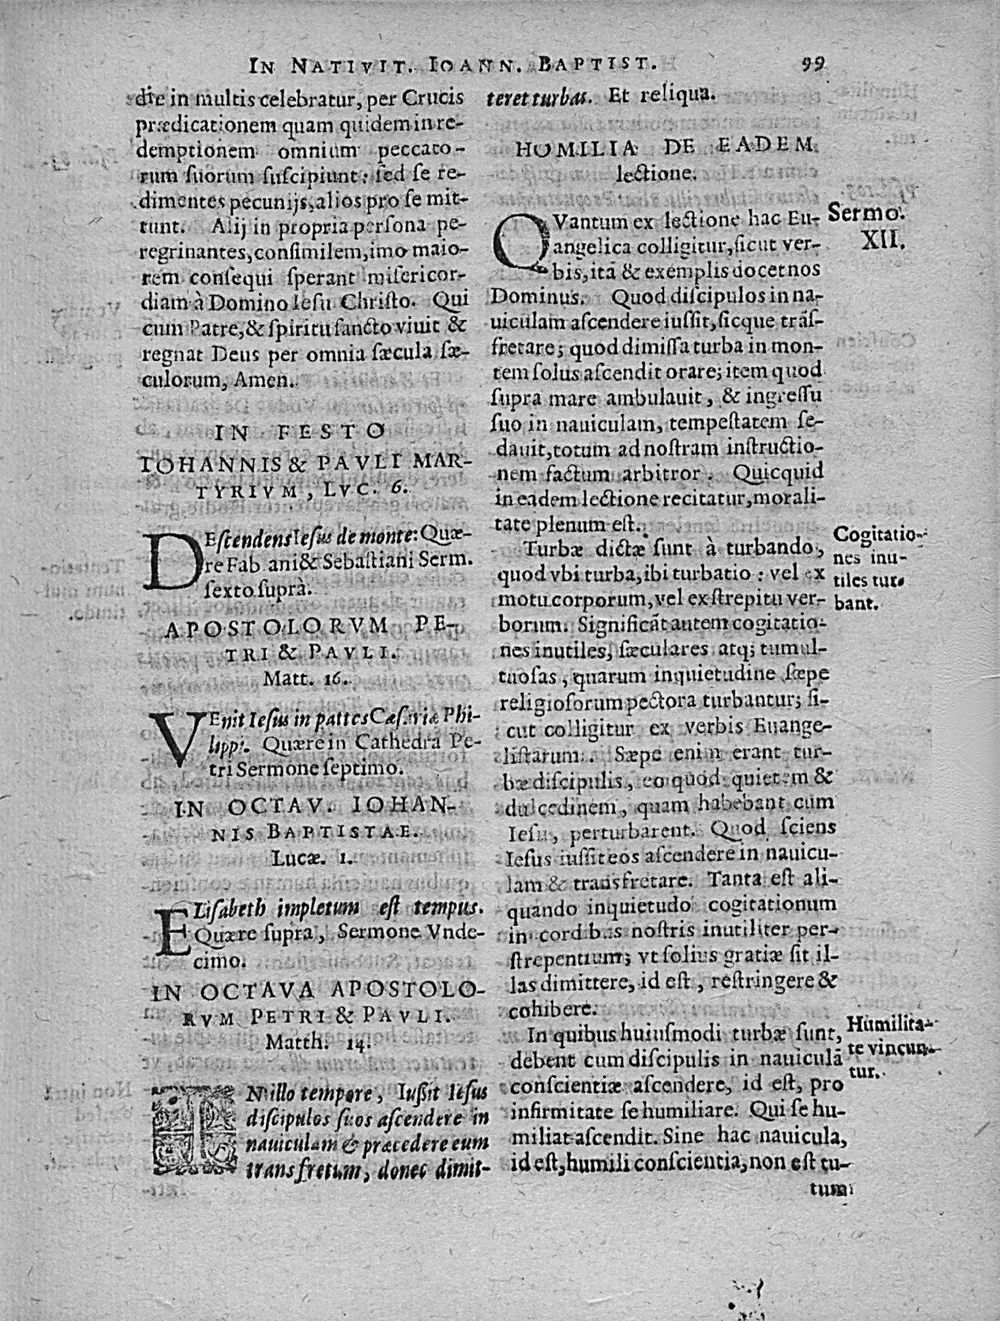 IN NATIVIT. IOANN. BAPTIST. 99
die in multis celebratur, per Crucis
prædicationem quam quidem in re-
demptionem omnium peccato-
rum suorum suscipiunt: sed se re-
dimentes pecunijs, alios pro se mit-
tunt. Alij in propria persona pe-
regrinantes, consimilem, imo maio-
rem consequi sperant misericor-
diam à Domino Iesu Christo. Qui
cum Patre, & spiritu sancto viuit &
regnat Deus per omnia sæcula sæ-
culorum, Amen.
IN FESTO
IOHANNIS & PAVLI MAR-
TYRIVM, LVC. 6.
DEscendens Iesus de monte: Quæ-
re Fabiani & Sebastiani Serm.
sexto suprà.
APOSTOLORVM PE-
TRI & PAVLI.
Matt. 16.
VEnit Iesus in partes Cæsariæ Phi-
lippi. Quære in Cathedra Pe-
tri Sermone septimo.
IN OCTAV. IOHAN-
NIS BAPTISTAE.
Lucæ. 1.
ELisabeth impletum est tempus.
Quære supra, Sermone Vnde-
cimo.
IN OCTAVA APOSTOLO-
RVM PETRI & PAVLI.
Matth. 14.
IN illo tempore, Iussit Iesus
discipulos suos ascendere in
nauiculam & præcedere eum
trans fretum, donec dimit-
teret turbas. Et reliqua.
HOMILIA DE EADEM
lectione.
QVantum ex lectione hac Eu-
angelica colligitur, sicut ver-
bis, ità & exemplis docet nos
Dominus. Quod discipulos in na-
uiculam ascendere iussit, sicque trãs-
fretare; quod dimissa turba in mon-
tem solus ascendit orare; item quod
supra mare ambulauit, & ingressu
suo in nauiculam, tempestatem se-
dauit, totum ad nostram instructio-
nem factum arbitror. Quicquid
in eadem lectione recitatur, morali-
tate plenum est.
Turbæ dictæ sunt à turbando,
quod vbi turba, ibi turbatio: vel ex
motu corporum, vel ex strepitu ver-
borum. Significãt autem cogitatio-
nes inutiles, sæculares atq; tumul-
tuosas, quarum inquietudine sæpe
religiosorum pectora turbantur; si-
cut colligitur ex verbis Euange-
listarum. Sæpe enim erant tur-
bæ discipulis, eo quod quietem &
dulcedinem, quam habebant cum
Iesu, perturbarent. Quod sciens
Iesus iussit eos ascendere in nauicu-
lam & transfretare. Tanta est ali-
quando inquietudo cogitationum
in cordibus nostris inutiliter per-
strepentium; vt solius gratiæ sit il-
las dimittere, id est, restringere &
cohibere.
In quibus huiusmodi turbæ sunt,
debent cum discipulis in nauiculã
conscientiæ ascendere, id est, pro
infirmitate se humiliare. Qui se hu-
miliat ascendit. Sine hac nauicula,
id est, humili conscientia, non est tu-
tum
Sermo.
XII.
Cogitatio-
nes inu-
tiles tur-
bant.
Humilita-
te vincun-
tur.